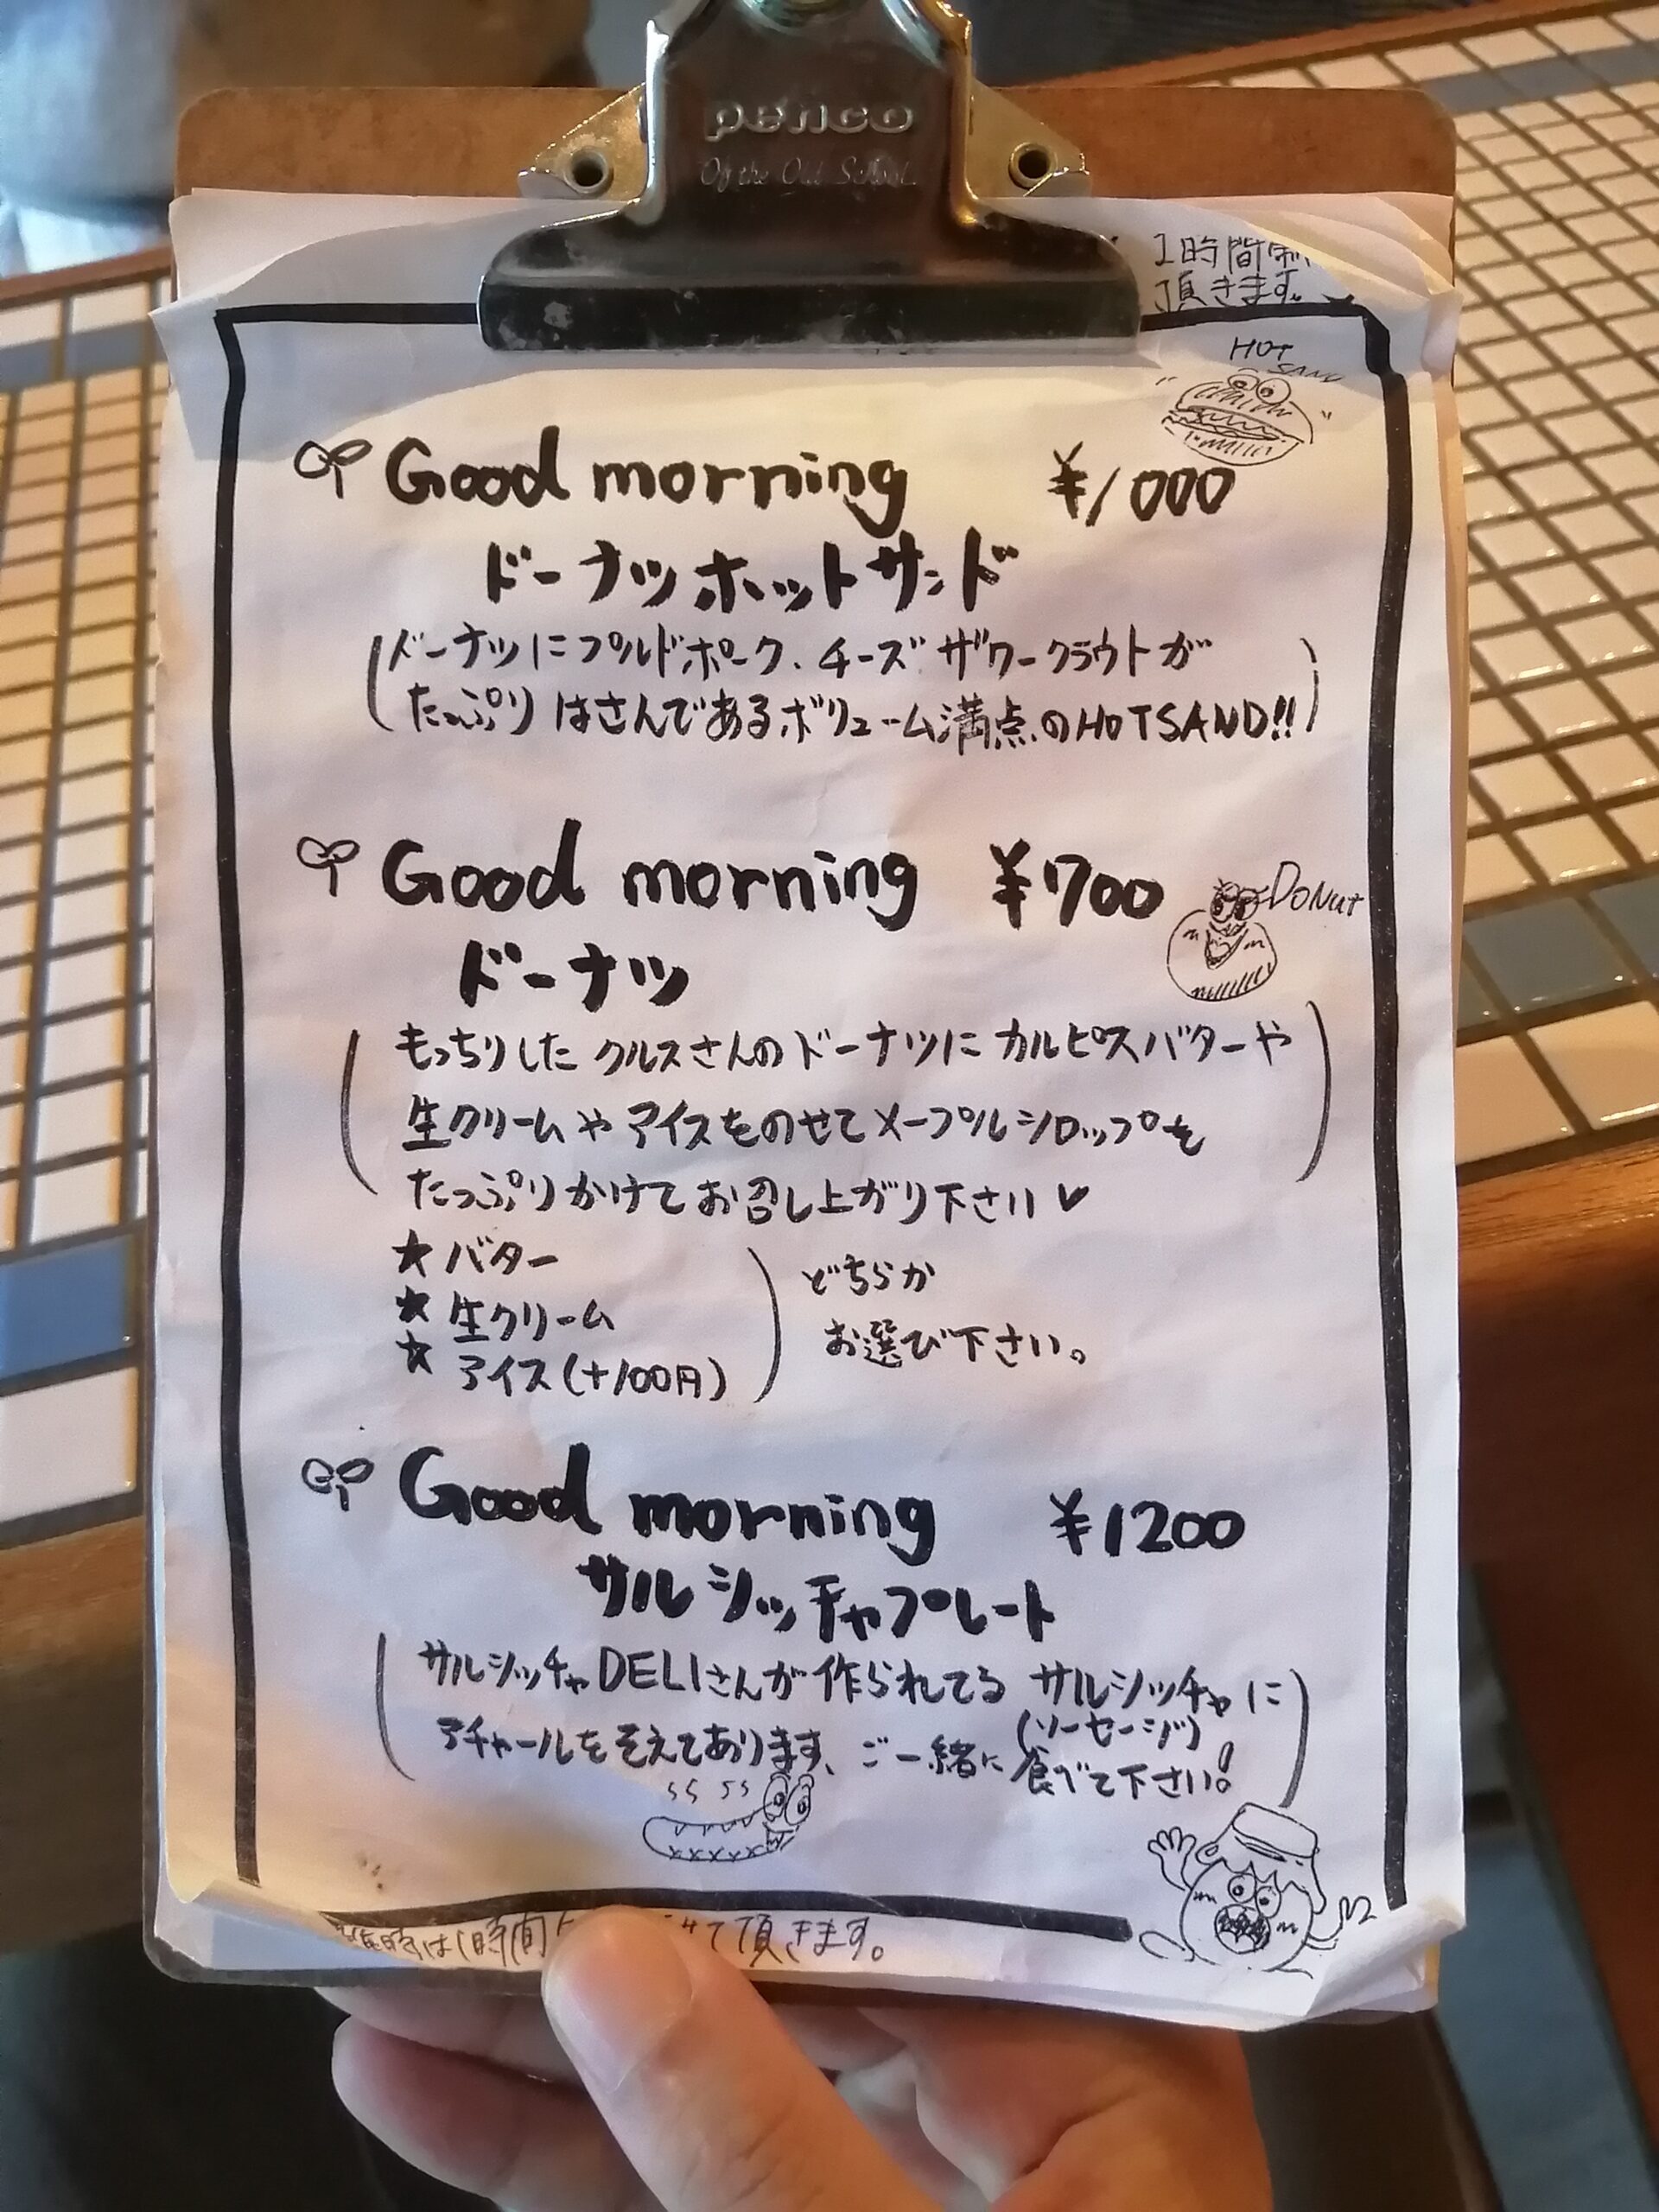 penco
Of the Old School.
1時間制
頂きます。
HOT
SAND
Good morning ¥1000
ドーナツホットサンド
(ドーナツにプルドポーク、チーズ ザワークラウトが
たっぷりはさんであるボリューム満点のHOTSAND!!)
Good morning ¥700
DONUT
ドーナツ
(もっちりしたクルスさんのドーナツにカルピスバターや
生クリームやアイスをのせてメープルシロップを
たっぷりかけてお召し上がり下さい♥)
★バター
★生クリーム
★アイス(+100円)
どちらか
お選び下さい。
Good morning ¥1200
サルシッチャプレート
(サルシッチャDELIさんが作られてる サルシッチャに
(ソーセージ)
アチャールをそえております、ご一緒に食べて下さい!)
は1時間 せて頂きます。